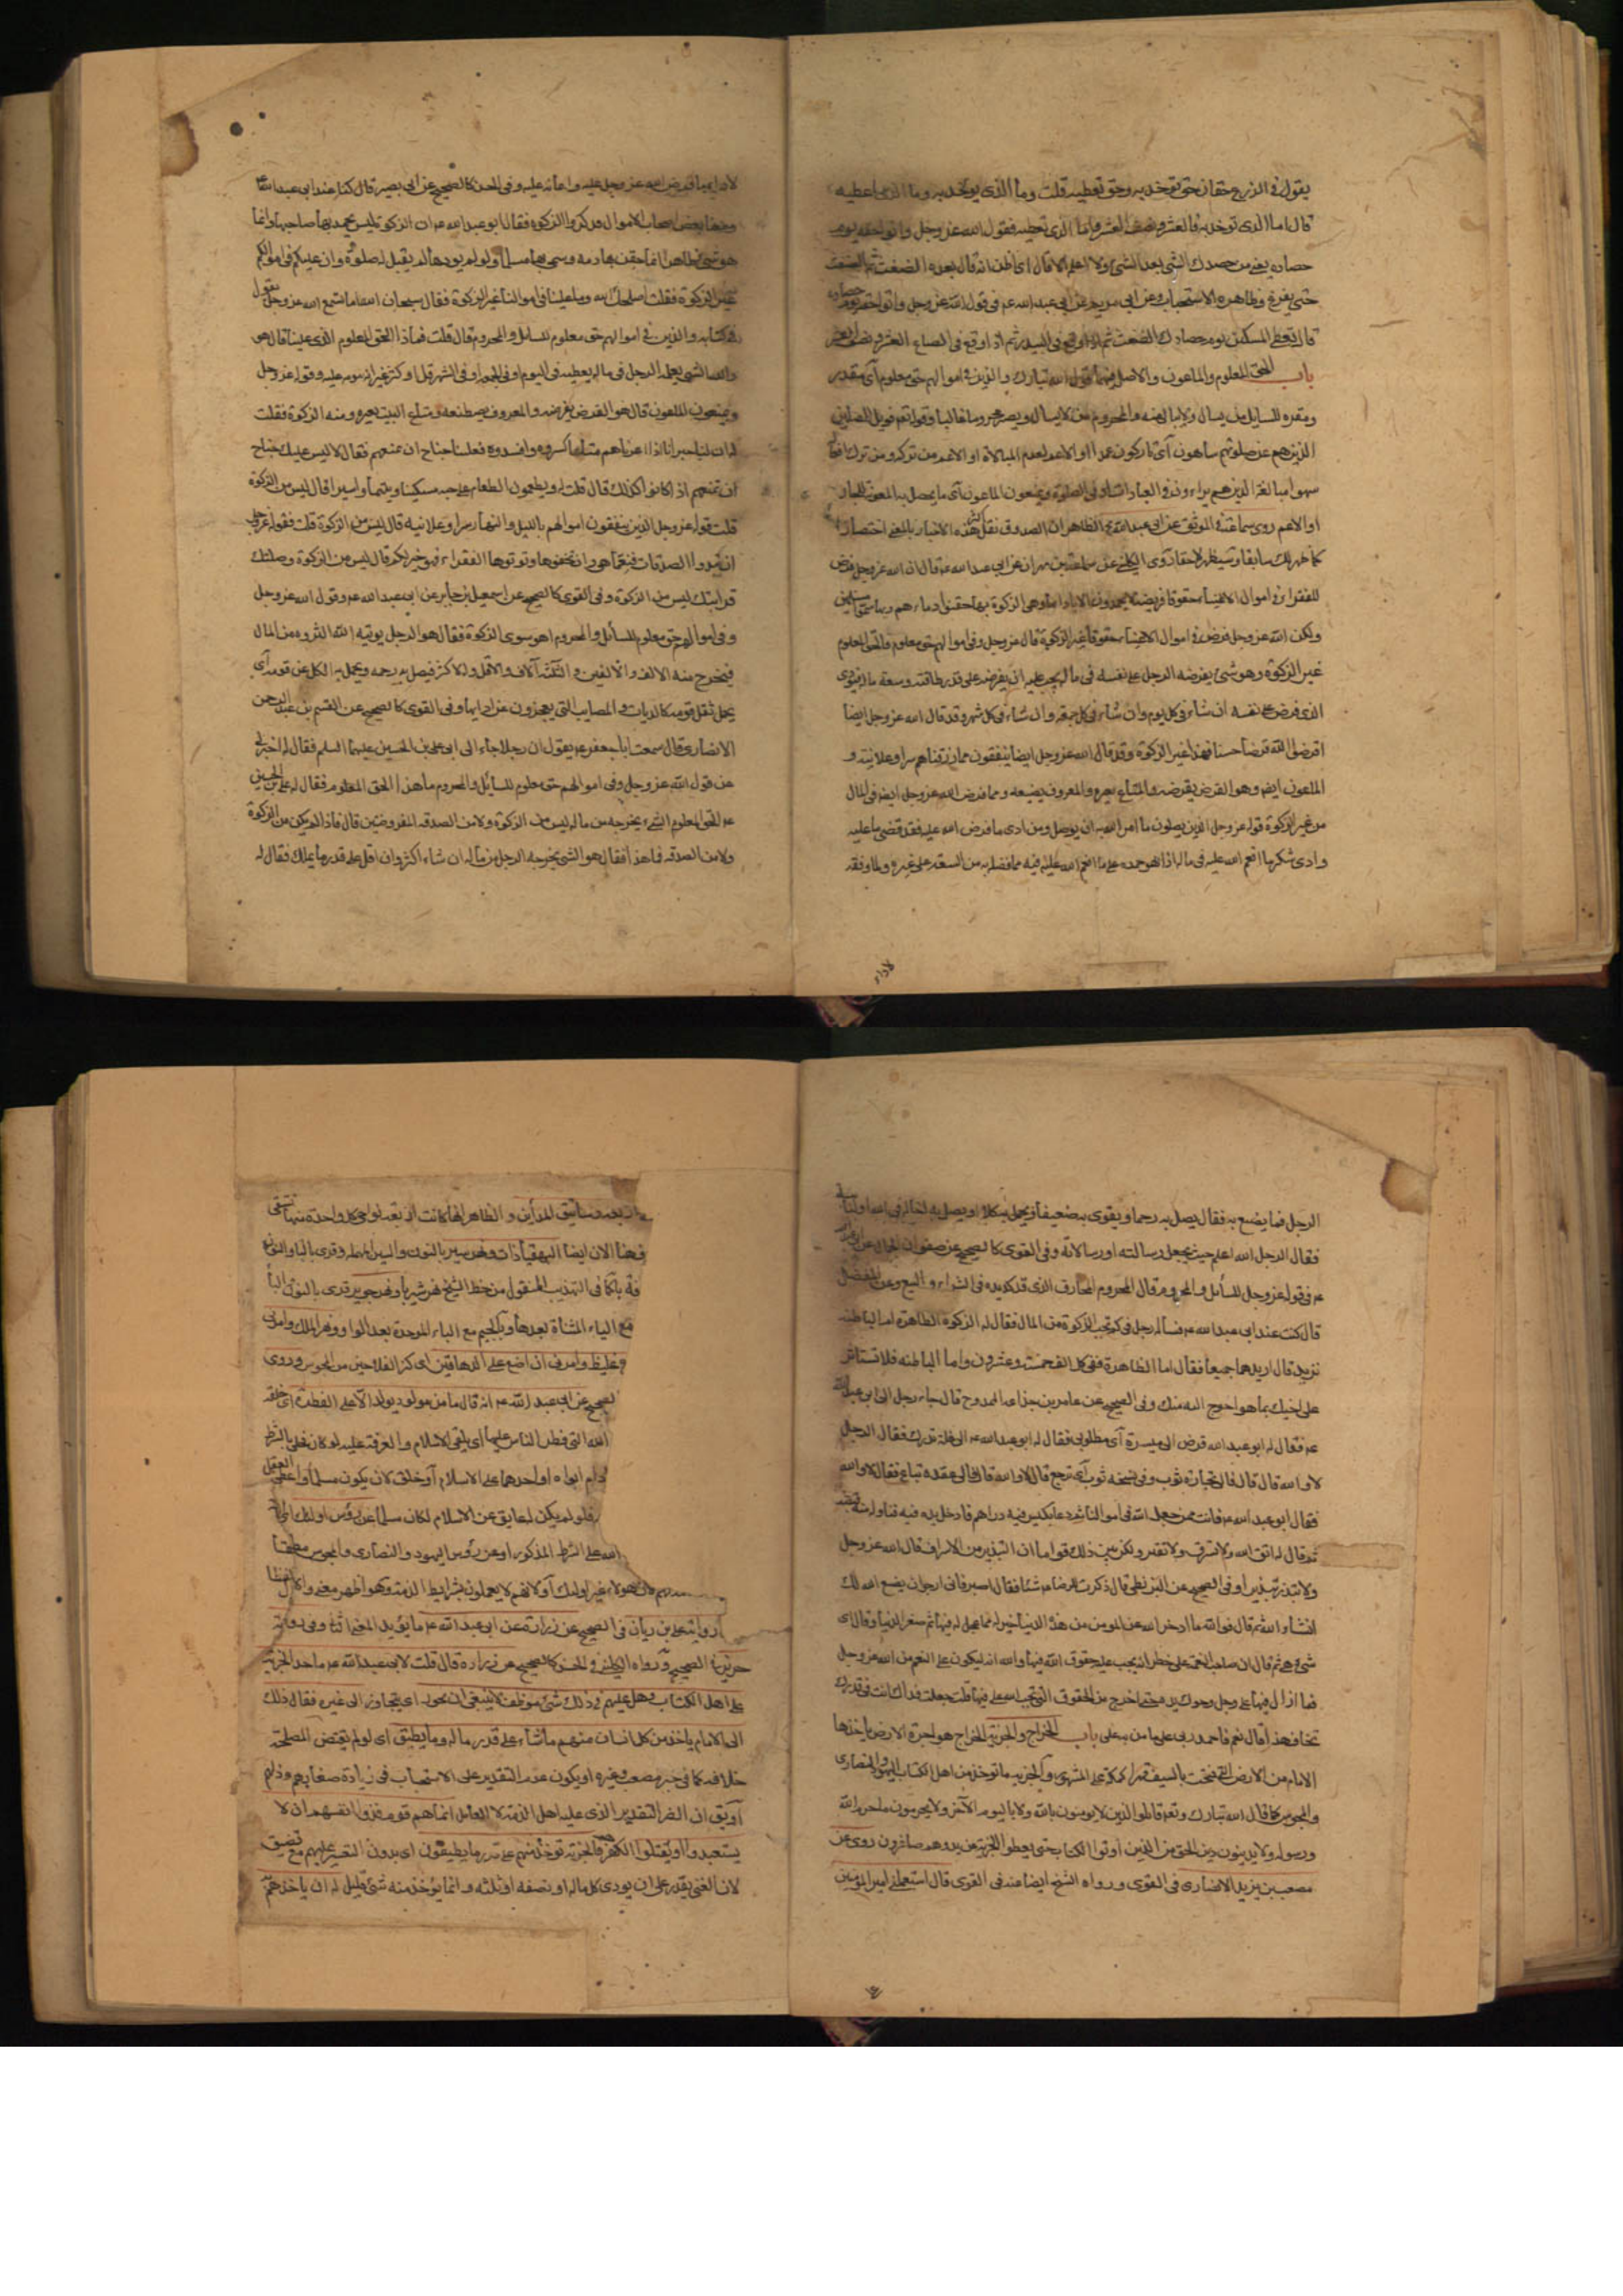 يقول فى الزرع حقان حق توخذ به وحق تعطيه قلت وما الذى يوخذ به وما الذى اعطيه
قال اما الذى توخذ به فالعشر ونصف العشر واما الذى تعطيه فقول الله عز وجل واتوا حقه يوم
حصاده يعنى من حصدك الشئ بعد الشئ ولا اعلمه الا قال اى اظن انه قال بعده الضغث ثم الضغث
حتى يفرغ وظاهره الاستحباب وعن ابى مريم عن ابى عبد الله عم فى قول الله عز وجل واتوا حقه يوم حصاده
قال تعطى المسكين يوم حصادك الضغث ثم اذا وقع فى البيدر ثم اذا وقع فى الصاع العشر ونصف العشر
باب الحق المعلوم والماعون والاصل فيهما قول الله تبارك والذين فى اموالهم حق معلوم اى مقدر
ومقرر للسايل من يسال ولا يبالى منه والمحروم من لايسال ويصير محروما غالبا وقوله تعم فويل للمصلين
الذين هم عن صلوتهم ساهون اى تاركون عمدا او الاعم لعدم المبالاة او الاعم من تركه ومن ترك افعا
سهوا مبالغة الذين هم يراءون فى العبادات او فى الصلوة ويمنعون الماعون اى ما يحصل به المعونة للجار
او الاعم روى سماعة فى الموثق عن ابى عبد الله عم الظاهر ان الصدوق نقل هذه الاخبار بالمعنى اختصارا
كما ظهر لك سابقا وسيظهر لاحقا روى الكلينى عن سماعة بن مهران عن ابى عبد الله عم قال ان الله عز وجل فرض
للفقراء فى اموال الاغنياء حقوقا فريضة لا يحمدون الا بادائها وهى الزكوة بها حقنوا دماءهم وبها سموا مسلمين
ولكن الله عز وجل فرض فى اموال الاغنياء حقوقا غير الزكوة قال عز وجل وفى اموالهم حق معلوم فالحق المعلوم
غير الزكوة وهو شئ يفرضه الرجل على نفسه فى ماله يجب عليه ان يفرضه على قدر طاقته وسعة ماله فيودى
الذى فرض على نفسه ان شاء فى كل يوم وان شاء فى كل جمعة وان شاء فى كل شهر وقد قال الله عز وجل ايضا
اقرضوا الله قرضا حسنا فهذا غير الزكوة وقد قال الله عز وجل ايضا ينفقون مما رزقناهم سرا وعلانية و
الماعون ايضم وهو القرض يقرضه والمتاع يعيره والمعروف يضيعه ومما فرض الله عز وجل ايضم فى المال
من غير الزكوة قوله عز وجل الذين يصلون ما امر الله به ان يوصل ومن ادى ما فرض الله عليه فقد قضى ما عليه
وادى شكر ما انعم الله عليه فى ماله اذا هو حمده على ما انعم الله عليه فيه مما فضله به من السعة على غيره ولما وفقه
لاداء
لاداء ما فرض الله عز وجل عليه واعانه عليه وفى الحسن كالصحيح عن ابى بصير قال كنا عند ابى عبد الله عم
ومعنا بعض اصحاب الاموال فذكروا الزكوة فقال ابو عبد الله عم ان الزكوة ليس يحمد بها صاحبها وانما
هو شئ ظاهر انما حقن بها دمه وسمى بها مسلما ولو لم يودها لم يقبل له صلوة وان عليكم فى اموالكم
غير الزكوة فقلت اصلحك الله وما علينا فى اموالنا غير الزكوة فقال سبحان الله اما تسمع الله عز وجل يقول
فى كتابه والذين فى اموالهم حق معلوم للسايل والمحروم قال قلت فماذا الحق المعلوم الذى علينا قال هو
والله الشئ يعمله الرجل فى ماله يعطيه فى اليوم او فى الجمعة او فى الشهر قل او كثر غير انه يدوم عليه وقوله عز وجل
ويمنعون الماعون قال هو القرض يقرضه والمعروف يصطنعه ومتاع البيت يعيره ومنه الزكوة فقلت
له ان لنا جيرانا اذا اعرناهم متاعا كسروه وافسدوه فعلينا جناح ان نمنعهم فقال لا ليس عليك جناح
ان تمنعهم اذا كانوا كذلك قال قلت له ويطعمون الطعام على حبه مسكينا ويتيما واسيرا قال ليس من الزكوة
قلت قوله عز وجل الذين ينفقون اموالهم بالليل والنهار سرا وعلانية قال ليس من الزكوة قلت فقوله عز وجل
ان تبدوا الصدقات فنعما هى وان تخفوها وتوتوها الفقراء فهو خير لكم قال ليس من الزكوة وصلتك
قرابتك ليس من الزكوة وفى القوى كالصحيح عن اسمعيل بن جابر عن ابى عبد الله عم وقول الله عز وجل
وفى اموالهم حق معلوم للسائل والمحروم اهو سوى الزكوة فقال هو الرجل يوتيه الله الثروة من المال
فيخرج منه الالف والالفين والثلثة آلاف والاقل والاكثر فيصل به رحمه ويحمل به الكل عن قومه اى
يحمل ثقل قومه كالديات والمصايب التى يعجزون عن ادايها وفى القوى كالصحيح عن القسم بن عبد الرحمن
الانصارى قال سمعت ابا جعفر عم يقول ان رجلا جاء الى ابى على بن الحسين عليهما السلم فقال له اخبرنى
عن قول الله عز وجل وفى اموالهم حق معلوم للسائل والمحروم ما هذا الحق المعلوم فقال له على بن الحسين
عم الحق المعلوم الشئ يخرجه من ماله ليس من الزكوة ولا من الصدقه المفروضتين قال فاذا لم يكن من الزكوة
ولا من الصدقه فما هذا فقال هو الشئ يخرجه الرجل من ماله ان شاء اكثر وان شاء اقل على قدر ما يملك فقال له
الرجل فما يصنع به فقال يصل به رحما ويقوى به ضعيفا ويحمل به كلا او يصل به اخا له فى الله او لنائبة
فقال الرجل الله اعلم حيث يجعل رسالته او رسالاته وفى القوى كالصحيح عن صفوان الجمال عن ابى عبد الله
عم فى قوله عز وجل للسائل والمحروم قال المحروم المحارف الذى قد حرم كد يده فى الشراء والبيع وعن المفضل
قال كنت عند ابى عبد الله عم فساله رجل فى كم تجب الزكوة من المال فقال له الزكوة الظاهرة ام الباطنة
تريد قال اريدهما جميعا فقال اما الظاهرة ففى كل الف خمسة وعشرون واما الباطنة فلا تستاثر
على اخيك بما هو احوج اليه منك وفى الصحيح عن عامر بن جذاعة الممدوح قال جاء رجل الى ابى عبد الله
عم فقال له ابو عبد الله قرض الى ميسرة اى مطلوبى فقال له ابو عبد الله عم الى غلة تدرك فقال الرجل
لا والله قال قال فالى تجارة تؤب وفى نسخه توب اى ترجع قال لا والله قال فالى عقدة تباع فقال لا والله
فقال ابو عبد الله عم فانت ممن جعل الله فى اموالنا فدعا بكيس فيه دراهم فادخل يده فيه فناوله منه قبضة
ثم قال له اتق الله ولا تسرف ولا تقتر ولكن بين ذلك قواما ان التبذير من الاسراف قال الله عز وجل
ولا تبذر تبذيرا وفى الصحيح عن البزنطى قال ذكرت للرضا عم شئا فقال اصبر فانى ارجو ان يصنع الله لك
انشاء الله ثم قال فوالله ما ادخر الله عن المومن من هذه الدنيا خير له مما عجل له فيها ثم صغر الدنيا وقال اى
شئ هى ثم قال ان صاحب النعمة على خطر انه يجب عليه حقوق الله فيها والله انه ليكون على النعم من الله عز وجل
فما ازال فيها على وجل وحرك يده حتى اخرج من الحقوق التى تجب لله على فيها قلت جعلت فداك انت فى قدرك
تخاف هذا قال نعم فاحمد ربى على ما من به على باب الخراج والجزية الخراج هو اجرة الارض ياخذها
الامام من الارض التى فتحت بالسيف قهرا كمكة على المشهور والجزيه ما توخذ من اهل الكتاب اليهود والنصارى
والمجوس كما قال الله تبارك وتعم قاتلوا الذين لا يومنون بالله ولا باليوم الآخر ولا يحرمون ما حرم الله
ورسوله ولا يدينون دين الحق من الذين اوتوا الكتاب حتى يعطوا الجزية عن يد وهم صاغرون روى عن
مصعب بن يزيد الانصارى فى القوى ورواه الشيخ ايضا عنه فى القوى قال استعملنى امير المومنين
رساتيق المداين والظاهر انها كانت اربعة نواحى كل واحدة منها تسقى
من الان ايضا البهقياذات ونهر سير بالنون والسين المهملة وقرى بالباء والنون
كما فى التهذيب المنقول من خط الشيخ نهر شيريا ونهر جوير قرى بالنون الباء
مع الياء المثناة بعدها وبالجيم مع الباء الموحدة بعد الواو ونهر الملك وامرنى
غليظ وامرنى ان اضع على الدهاقين اى كبراء الفلاحين من المجوس وروى
الصحيح عن ابى عبد الله عم انه قال ما من مولود يولد الا على الفطرة اى خلقه
الله التى فطر الناس عليها اى يلقى الاسلام والمعرفة عليه لو كان بالشرط
ابواه او احدهما على الاسلام او خلق لان يكون مسلما واعطى العقل
فلو لم يكن له عايق عن الاسلام لكان مسلما
الله على الشرط المذكور او عن رؤس اليهود والنصارى والمجوس مطلقا
لان هولاء غير اولئك او لانهم لا يعملون بشرايط الذمة وهو اظهر معنى والاول لفظا
رواية على بن ريان فى الصحيح عن زرارة عن ابى عبد الله عم ما يؤيد المعنى الثانى وفى رواية
حريز فى الصحيح ورواه الكلينى فى الحسن كالصحيح عن زرارة قال قلت لابى عبد الله عم ما حد الجزية
على اهل الكتاب وهل عليهم فى ذلك شئ موظف لا ينبغى ان يجوز اى يتجاوز الى غيره فقال ذلك
الى الامام ياخذ من كل انسان منهم ما شاء على قدر ماله وما يطيق اى لو لم يقتض المصلحة
خلافه كما فى خبر مصعب وغيره او يكون عدم التقدير على الاستحباب فى زيادة صغارهم وذلهم
او يق ان الضرر التقدير الذى على اهل الذمة لا العامل انما هم قوم فدوا انفسهم ان لا
يستعبدوا او يقتلوا لكفرهم فالجزية توخذ منهم على قدر ما يطيقون اى بدون التعسير عليهم مع تضيق
لان الغنى يقدر على ان يودى كل ماله او نصفه او ثلثه وانما يؤخذ منه شئ قليل له ان ياخذهم